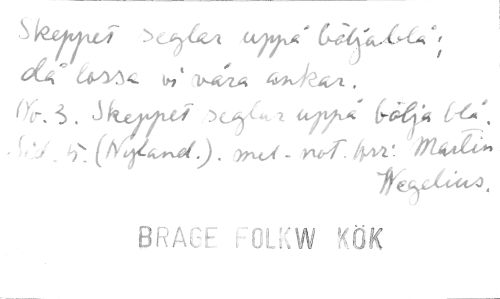 Skeppet seglar uppå bölja blå;
då lossa vi våra ankar.
No. 3. Skeppet seglar uppå bölja blå.
Sid. 5. (Nyland.). mel-not. arr: Martin
Wegelius.
BRAGE FOLKW KÖK